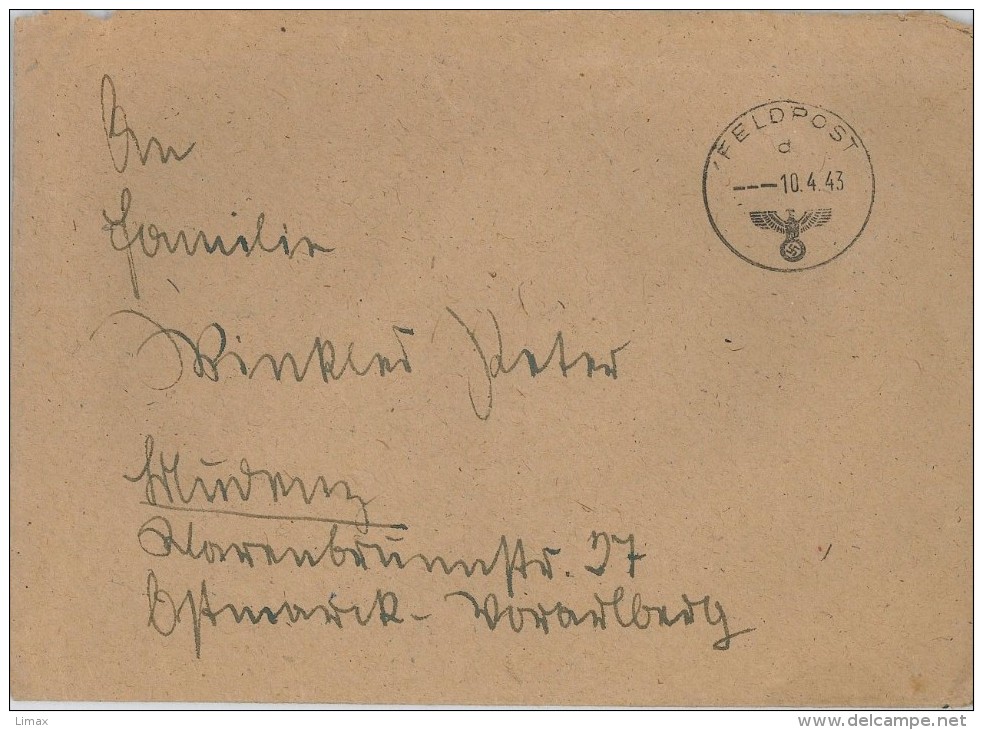 FELDPOST
d
---10.4.43
An
Familie
Winkler Peter
Bludenz
Klarenbrunnstr. 27
Ostmarck- Vorarlberg
Limax
www.delcampe.net